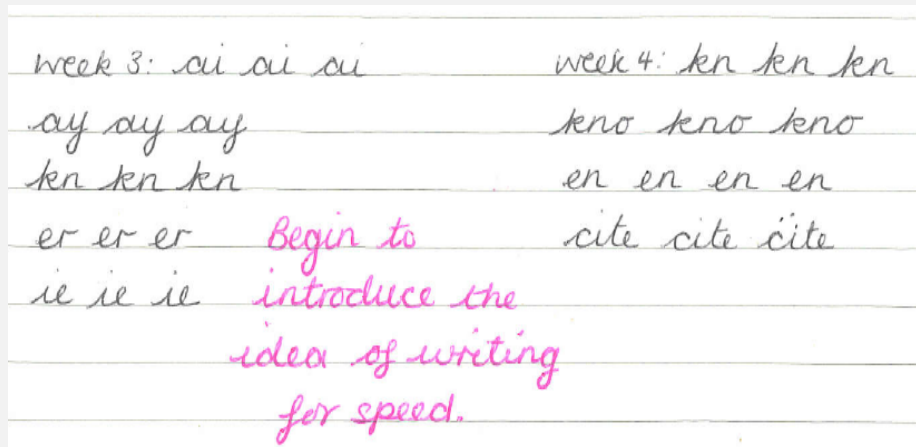 week 3: ai ai ai
ay ay ay
kn kn kn
er er er
ie ie ie
Begin to
introduce the
idea of writing
for speed.
week 4: kn kn kn
kno kno kno
en en en en
cite cite cite